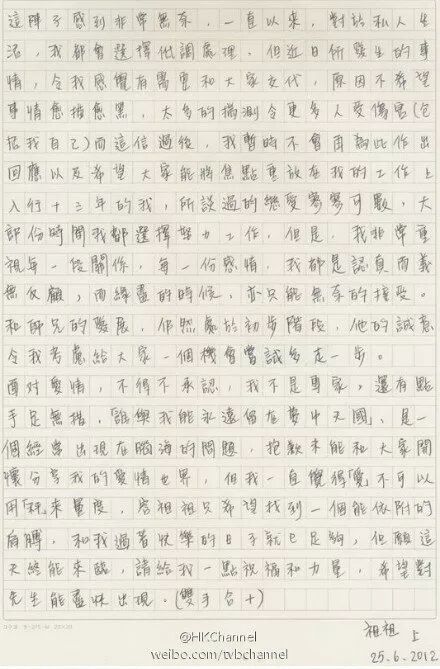 這陣子感到非常無奈，一直以來，對於私人生
活，我都會選擇低調處理，但近日所發生的事
情，令我感覺有需要和大家交代，原因不希望
事情愈描愈黑，太多的揣測令更多人受傷害(包
括我自己)而這信過後，我暫時不會再為此作出
回應以及希望大家能將焦點重放在我的工作上
入行十三年的我，所談過的戀愛寥寥可數，大
部份時間我都選擇努力工作，但是，我非常重
視每一段關係，每一份感情，我都是認真而義
無反顧，而緣盡的時候，亦只能無奈的接受。
和師兄的發展，仍然處於初步階段，他的誠意
令我考慮給大家一個機會嘗試多走一步。
面對愛情，不得不承認，我不是專家，還有點
手足無措，「誰與我能永遠留在夢中天國」，是一
個經常出現在腦海的問題，抱歉未能和大家開
懷分享我的愛情世界，但我一直覺得「愛」不可以
用「秤」來量度，容祖祖只希望找到一個能依附的
肩膊，和我過著快樂的日子就已足夠，但願這
天終能來臨，請給我一點祝福和力量，希望對
先生能盡快出現。(雙手合十)
祖祖 上
25.6.2012
@HKChannel
weibo.com/tvbchannel